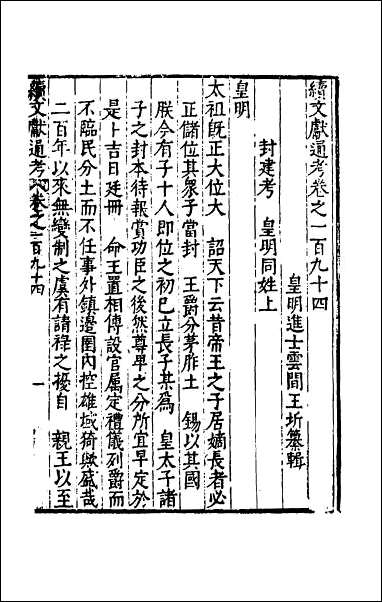 續文獻通考卷之一百九十四
皇明進士雲間王圻纂輯
封建考 皇明同姓上
皇明
太祖旣正大位大 詔天下云昔帝王之子居嫡長者必
正儲位其衆子當封 王爵分茅胙土 錫以其國
朕今有子十人卽位之初已立長子某爲 皇太子諸
子之封本待報賞功臣之後然尊卑之分所宜早定於
是卜吉日廷冊 命王置相傅設官屬定禮儀列爵而
不臨民分土而不任事外鎮邊圉內控雄域猗歟盛哉
二百年以來無變制之虞有請祿之擾自 親王以至
續文獻通考 卷之一百九十四
一